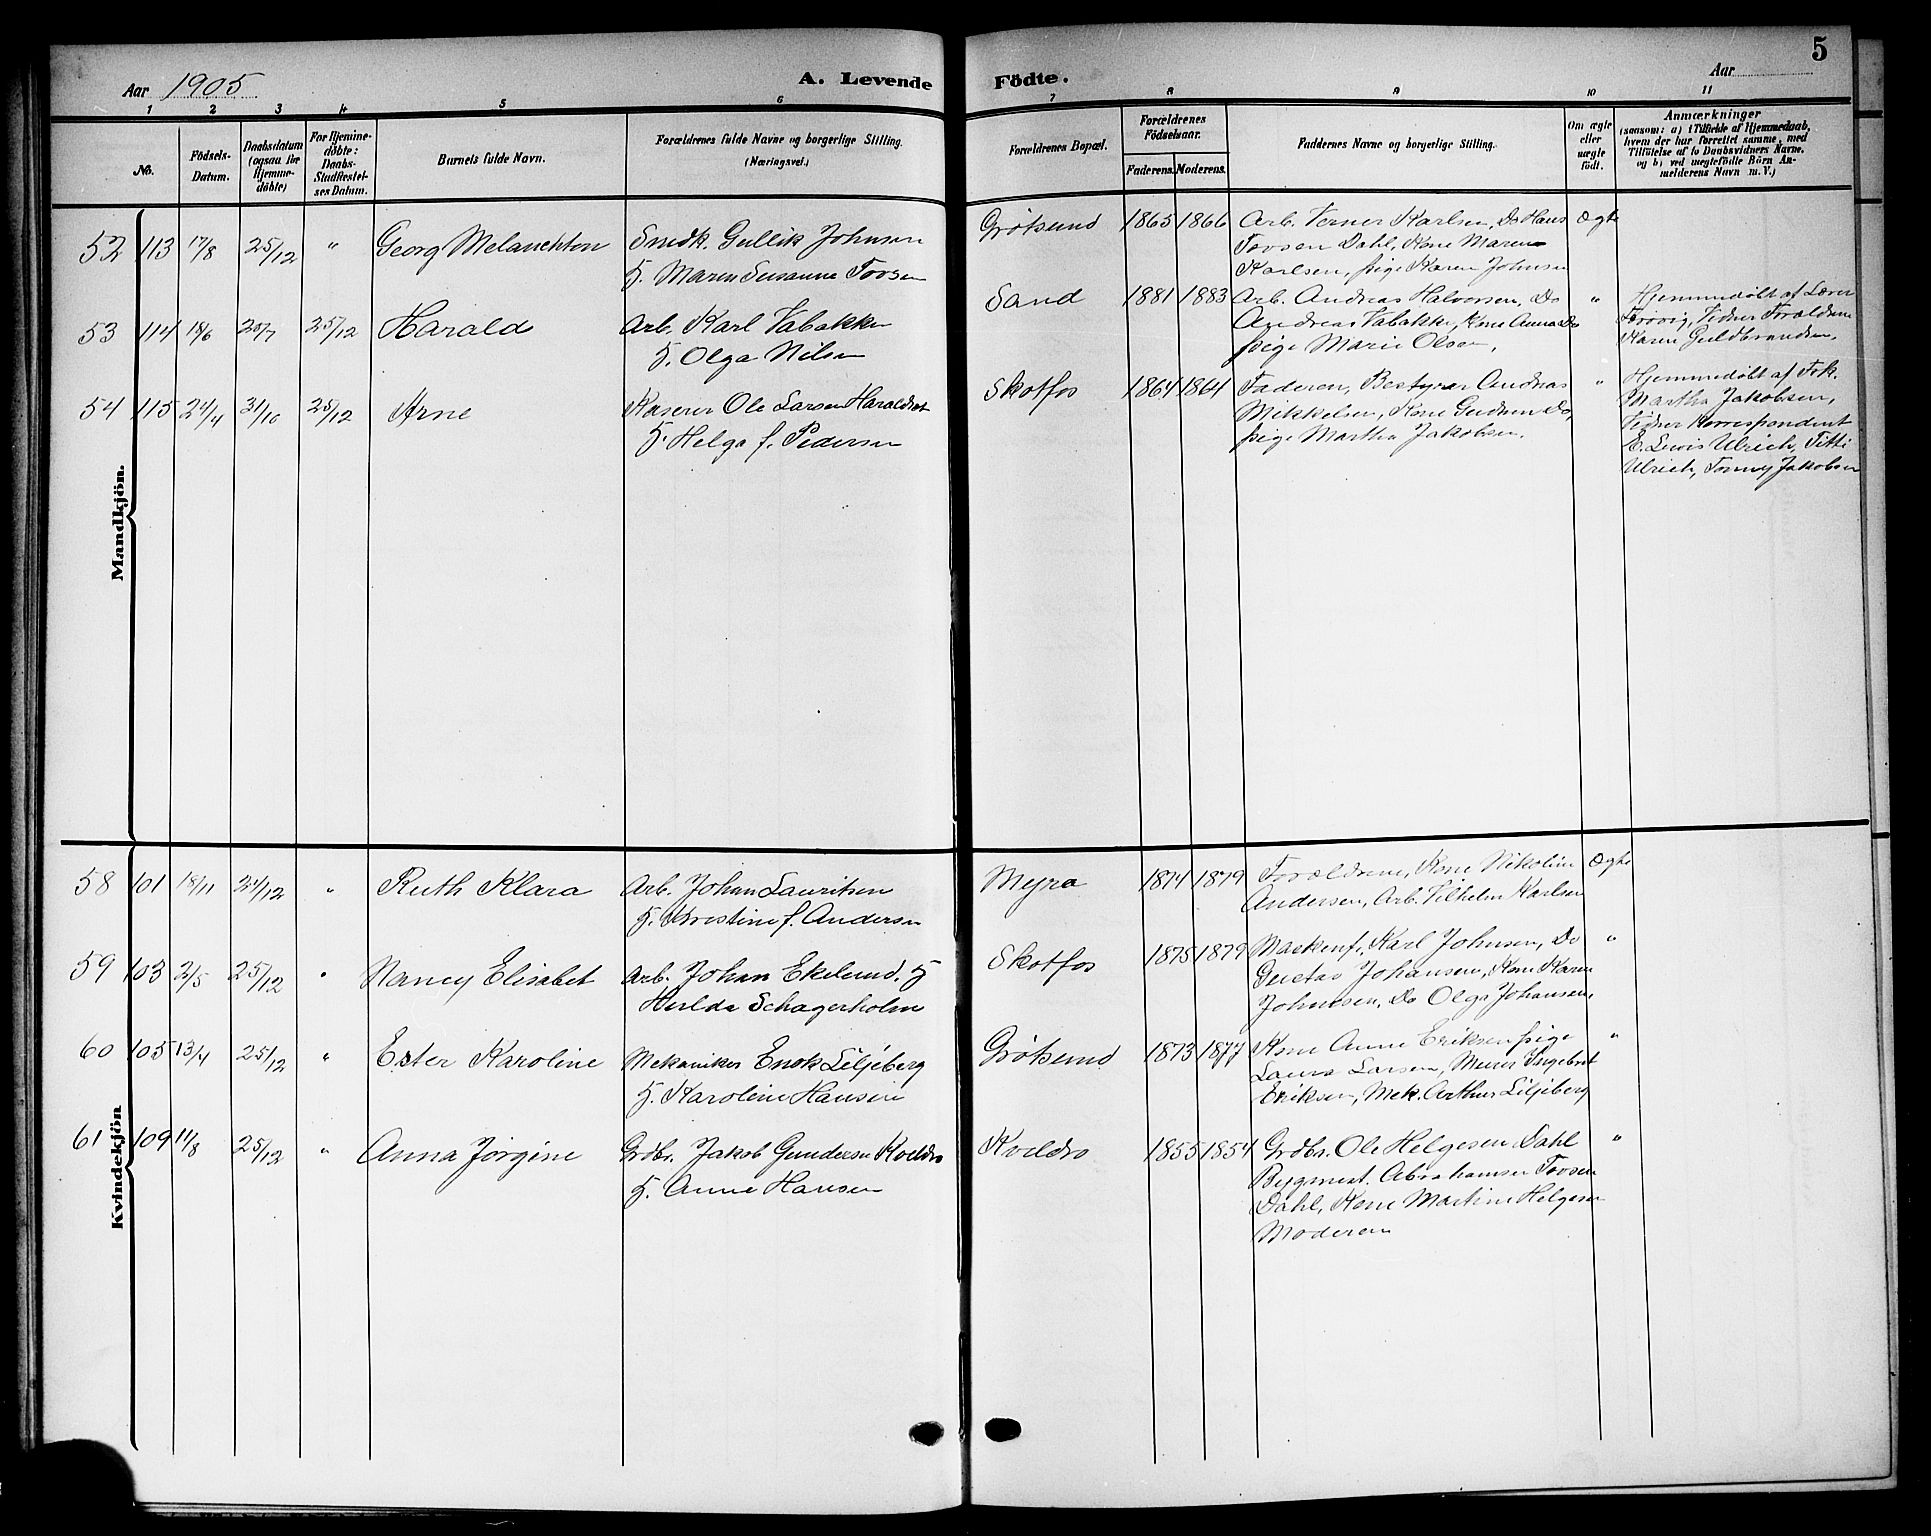 5
Aar 1905
A. Levende Födte.
Aar
1 2 3 4 5 6 7 8 9 10 11
No.
Födsels-
Datum.
Daabsdatum
(ogsaa for
Hjemme-
döbte)
For Hjemme-
døbte:
Daabs-
Stadfæstel-
ses Datum.
Barnets fulde Navn.
Forældrenes fulde Navne og borgerlige Stilling.
(Næringsvei.)
Forældrenes Bopæl.
Forældrenes
Födselsaar.
Faderens. Moderens.
Faddernes Navne og borgerlige Stilling.
Om ægte
eller
uægte
födt.
Anmærkninger
(saasom: a) i Tilfælde af Hjemmedaab,
hvem der har forrettet samme, med
Tilföielse af to Daabsvidners Navne.
og b) ved uegtefödte Börn An-
melderens Navn m. V.)
Mandkjön.
52 113 17/8 25/12 " Georg Melanchton
Smdk. Gullik Johnsen
H. Maren Susanna Tovsen
Grötsund 1865 1866
Arb. Verner Karlsen, Do Hans
Tovsen Dahl, Kone Maren
Karlsen, pige Karen Johnsen
Ægte
53 114 18/6 20/7 25/12 Harald
Arb. Karl Vabakken
H. Olga Nilsen
Sand 1881 1883
Arb. Andreas Halvorsen, Do
Andreas Vabakken, Kone Anna Do
pige Marie Olsen.
"
Hjemmedøbt af Lærer
Vidner Forældrene
Karen Guldbrandsen.
54 115 24/4 31/10 25/12 Arne
Kaserer Ole Larsen
H. Helga f. Pedersen
Skotfos 1864 1864
Faderen, Bestyrer Andreas
Mikkelsen, Kone Gudrun Do,
pige Martha Jakobsen.
"
Hjemmedøbt af Frk.
Martha Jakobsen,
Vidner Korrespondent
E. Lewis Ulrich, Titti
Ulrich, Tommy Jakobsen
Kvindekjön
58 101 18/11 24/12 " Ruth Klara
Arb. Johan Lauritsen
H. Kristine f. Andersen
Myra 1874 1879
Forældrene, Kone Nikoline
Andersen, Arb. Vilhelm Karlsen
Ægte
59 103 2/5 25/12 " Nancy Elisabet
Arb. Johan Ekelund, H
Hulda Schagerholm
Skotfos 1875 1879
Maskenf. Karl Johnsen, Do
Gustav Johansen, Kone Karen
Johnsen, Do Olga Johansen.
"
60 105 13/4 25/12 " Ester Karoline
Mekaniker Enok Liljeberg
H. Karoline Hansen
Grötsund 1873 1877
Kone Anne Eriksen pige
Laura Larsen, Murer Ingebret
Eriksen, Mek. Arthur Liljeberg
"
61 109 11/8 25/12 " Anna Jørgine
Grdbr. Jakob Gundersen Kveldro
H. Anne Hansen
Kveldro 1855 1854
Grdbr. Ole Helgesen Dahl
Bygmest. Abrahamsen Tovsen
Dahl, Kone Martine Helgesen
Moderen
"